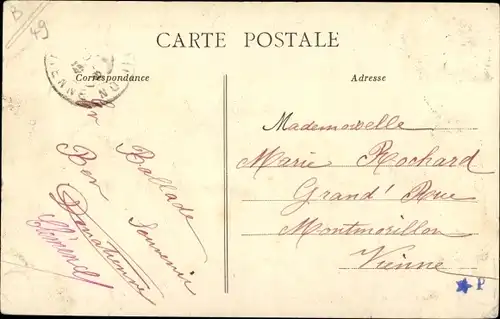 B
49
CARTE POSTALE
Correspondance
Adresse
En Ballade
Bon Souvenir
Donatienne
Clémence
Mademoiselle
Marie Rochard
Grand' Rue
Montmorillon
Vienne
P